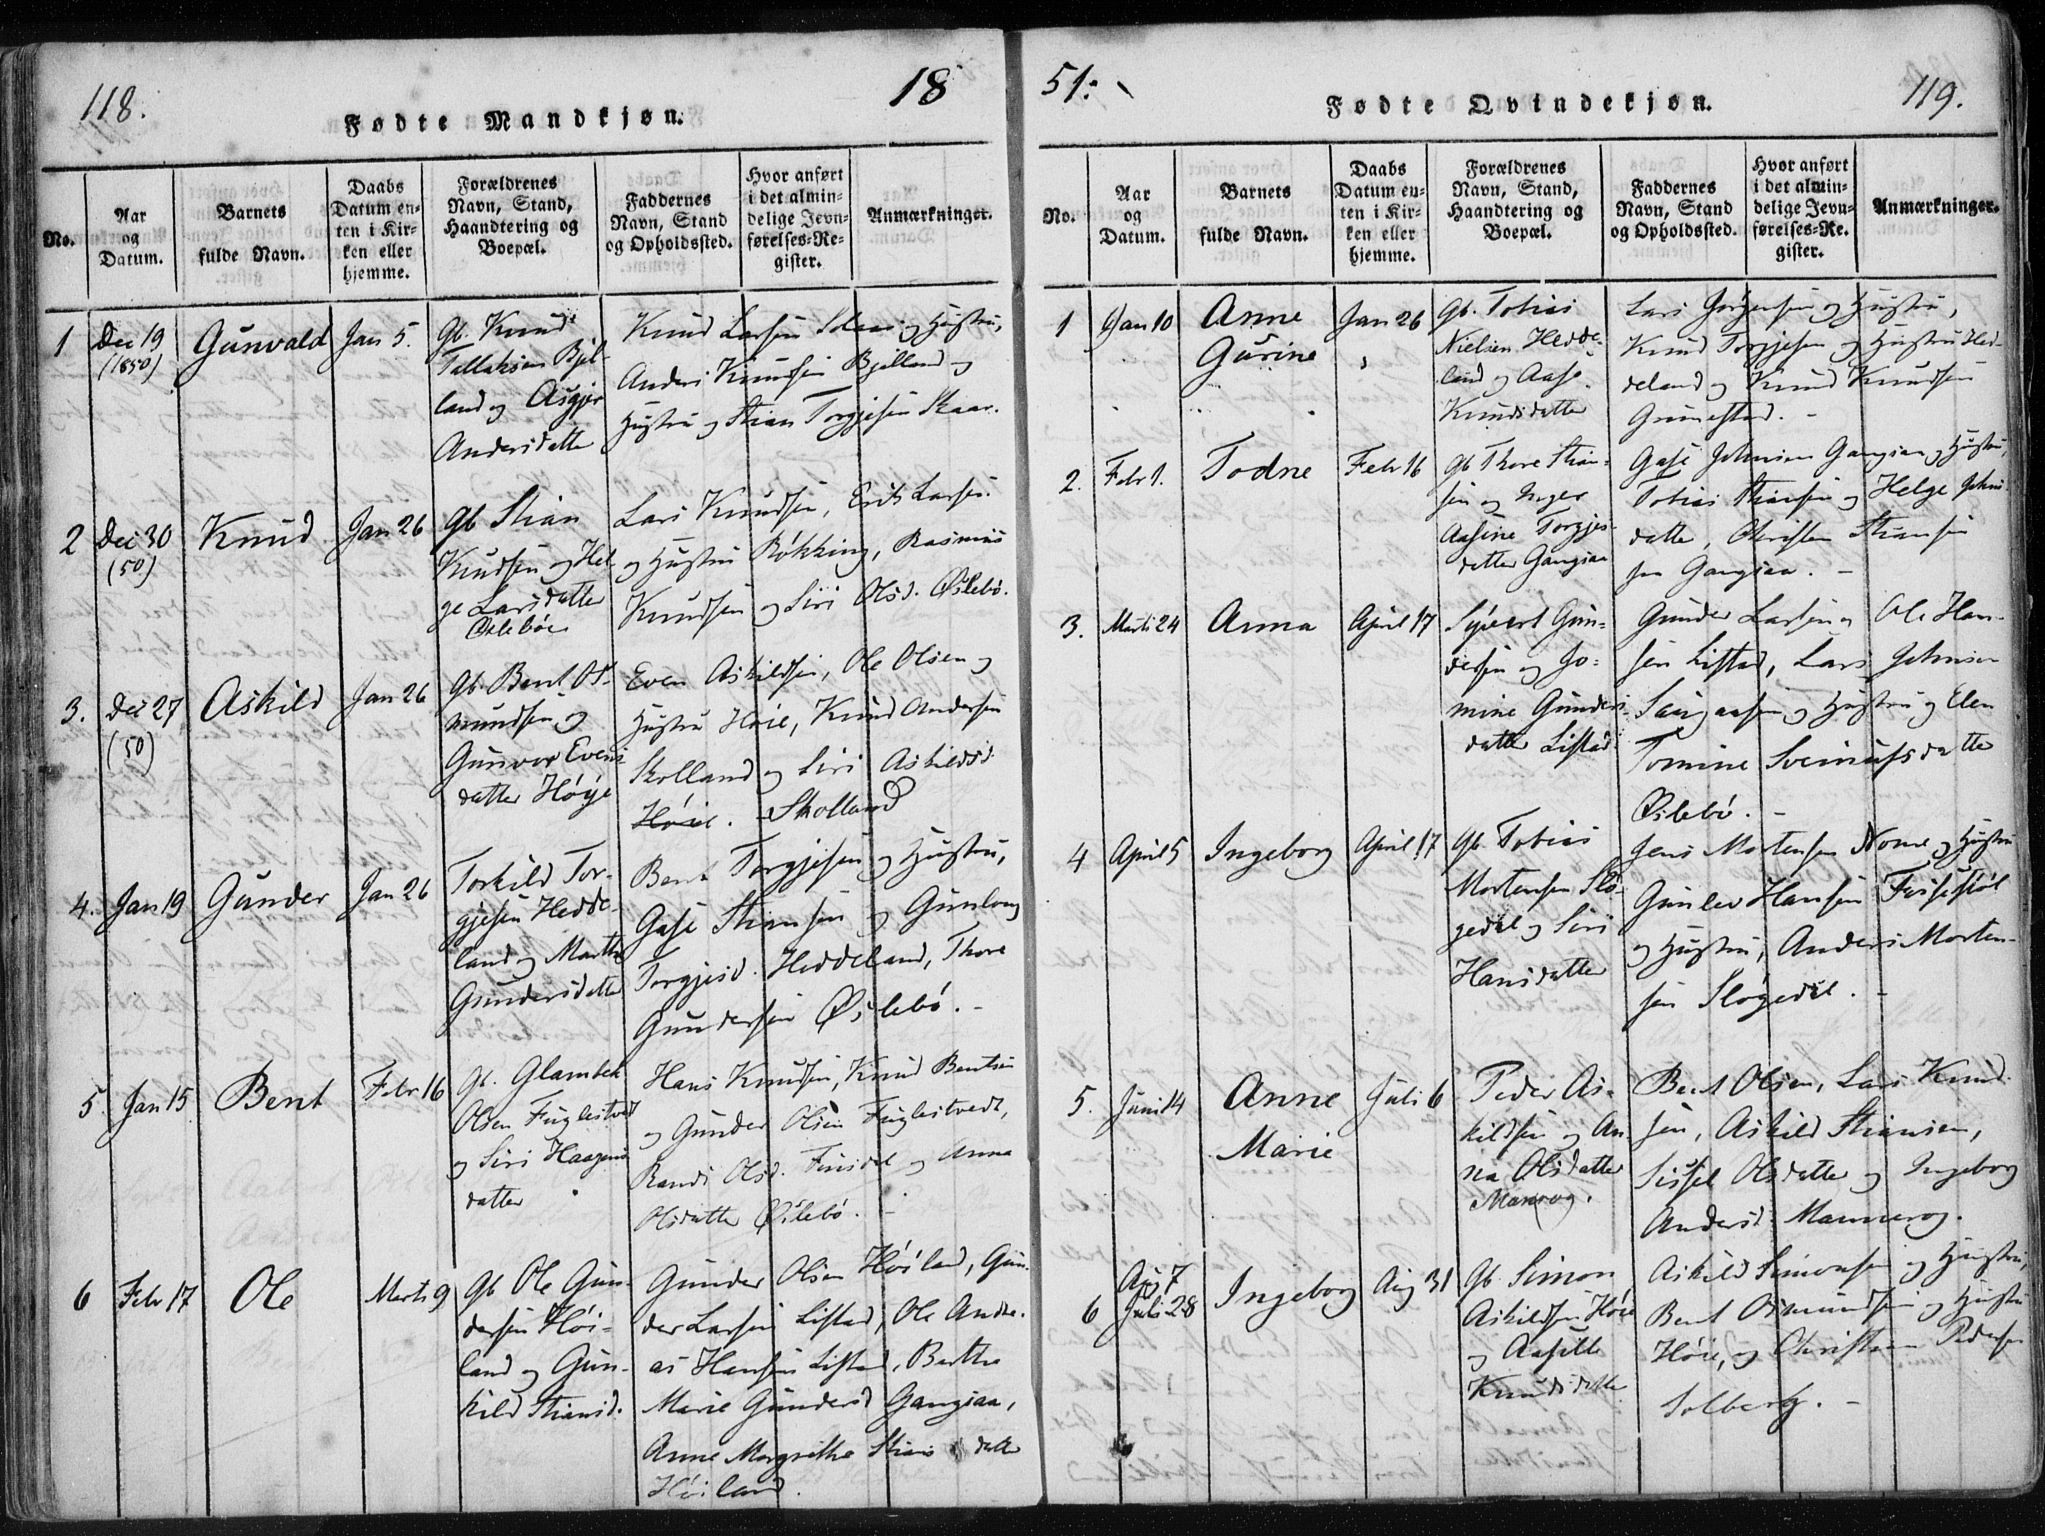 118.
18
Fødte Mandkjøn.
No.
Aar og Datum.
Barnets fulde Navn.
Daabs Datum enten i Kirken eller hjemme.
Forældrenes Navn, Stand, Haandtering og Boepæl.
Faddernes Navn, Stand og Opholdssted.
Hvor anført i det almindelige Jevnførelses-Register.
Anmærkninger.
1
Dec 19
(1850)
Gunvald
Jan 5.
Gb. Knud
Tallaksen Bjel-
land og Asgjer
Andersdatter
Knud Larsen og Hustru,
Anders Knudsen Bjelland og
Hustru og Stian Torgjesen Skaar.
2
Dec 30
(50)
Knud
Jan 26
Gb Stian
Knudsen og Hel-
ge Larsdatter
Øslebøe
Lars Knudsen, Erik Larsen
og Hustru Røkking, Rasmus
Knudsen og Siri Olsd. Øslebø.
3.
Dec 27
(50)
Askild
Jan 26
Gb. Bent Os-
mundsen og
Gunvor Evens
datter Høye
Even Askildsen, Ole Olsen og
Hustru Høie, Knud Andersen
Skolland og Siri Askildsd.
Høiel. Skolland
4.
Jan 19
Gunder
Jan 26
Torkild Tor-
gjesen Hedde-
land og Marthe
Gundersdatter
Bent Torgjesen og Hustru,
Gase Stiansen og Gunlaug
Torgjesd. Heddeland, Thore
Gundersen Øslebø.
5.
Jan 15
Bent
Febr 16
Gb. Glambek
Olsen Fuglestvedt
og Siri Haagens
datter
Hans Knudsen, Knud Bentsen
og Gunder Olsen Fuglestvedt,
Randi Olsd. Finsdal og Anna
Olsdatter Øslebø.
6
Febr 17
Ole
Marts 9
Gb Ole Gun-
dersen Høi-
land og Gun-
hild Stiansd.
Gunder Olsen Høiland, Gun-
der Larsen Listad, Ole Andre-
as Hansen Listad, Berthe
Marie Gundersd Gangsaa,
Anne Margrethe Stiansdatter
Høiland.
51.
119.
Fødte Qvindekjøn.
No.
Aar og Datum.
Barnets fulde Navn.
Daabs Datum enten i Kirken eller hjemme.
Forældrenes Navn, Stand, Haandtering og Boepæl.
Faddernes Navn, Stand og Opholdssted.
Hvor anført i det almindelige Jevnførelses-Re. gister.
Anmærkninger.
1
Jan 10
Anne
Gurine
Jan 26
Gb. Tobias
Nielsen Hedde-
land og Aase
Knudsdatter
Lars Jørgensen og Hustru,
Knud Torgjesen og Hustru Hed-
deland og Knud Knudsen
Grunestad.
2.
Febr 1.
Todne
Febr 16
Gb Thore Stian-
sen og Inger
Aasine Torgjes-
datter Gangsaa
Gase Johnsen Gangsaa og Hustru,
Tobias Stiansen og Helge Johns-
datter, Christen Stiansen
fra Gangsaa.
3.
Marts 24
Anna
April 17
Syvert Gun-
dersen og Jo-
mine Gunders
datter Listad
Gunder Larsen og Ole Han-
sen Listad, Lars Johnsen
og Hustru og Elen
Tomine datter
Øslebø.
4
April 5
Ingeborg
April 17
Gb. Tobias
Mortensen Slø-
gedal og Siri
Hansdatter
Jens Mortensen Nome og Hustru
Gunlev Hansen
og Hustru, Anders Morten-
sen Sløgedal.
5.
Juni 14
Anne
Marie
Juli 6
Peder As-
kildsen og An-
na Olsdatter
Manrog.
Bent Olsen, Lars Knud-
sen, Askild Stiansen,
Sissel Olsdatter og Ingeborg
Andersd. Mannerog.
6
Aug 7
Juli 28
Ingeborg
Aug 31
Gb. Simon
Askildsen Høie
og Aasille
Knudsdatter
Askild Simonsen og Hustru,
Bent Osmundsen og Hustru
Høie, og Christen Pedersen
Solberg.